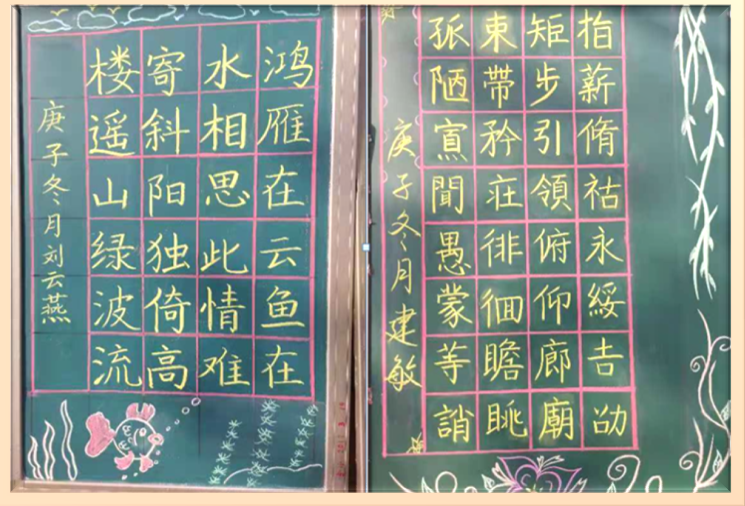 鸿雁在云鱼在
水相思此情难
寄斜阳独倚高
楼遥山绿波流
庚子冬月刘云燕
指薪脩祜永綏吉劭
矩步引領俯仰廊廟
東帶矜莊徘徊瞻眺
孤陋寡聞愚蒙等誚
庚子冬月建敏